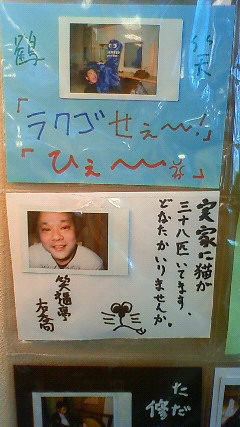 鶴
笑
「ラクゴせぇ〜!」
「ひぇ〜〜」
実家に猫が
三十八匹いてます。
どなたかいりませんか。
笑福亭
ただ